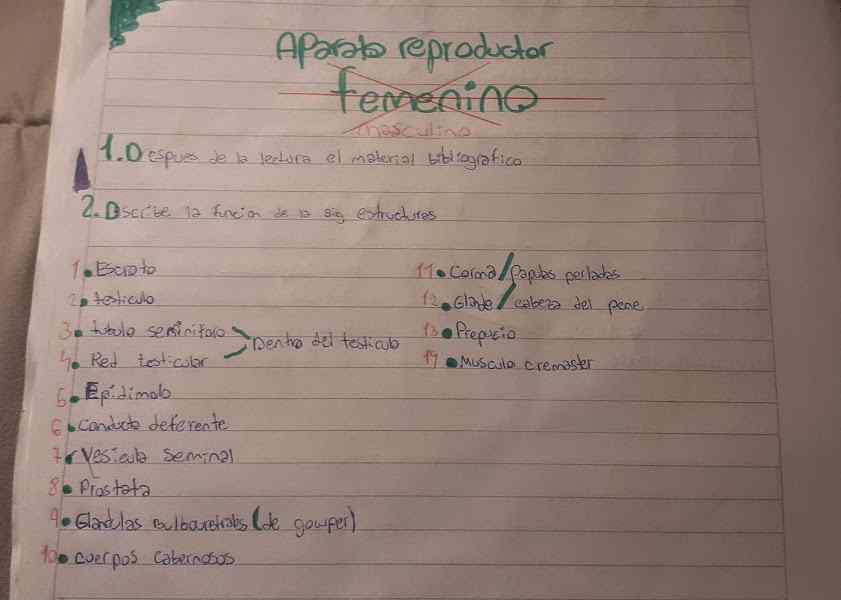 Aparato reproductor
femenino
masculino
1. Despues de la lectura el material bibliografico
2. Dscribe la funcion de la sig estructuras
1. Escroto
2. testiculo
3. tubulo seminifolo
4. Red testicular
Dentro del testiculo
5. Epidimolo
6. Conducto deferente
7. Vesicula seminal
8. Prostata
9. Gladulas bulbouretrabs (de gowper)
10. cuerpos cabernosos
11. Corona/papulas perladas
12. Glade/cabeza del pene
13. Prepucio
14. Musculo cremaster